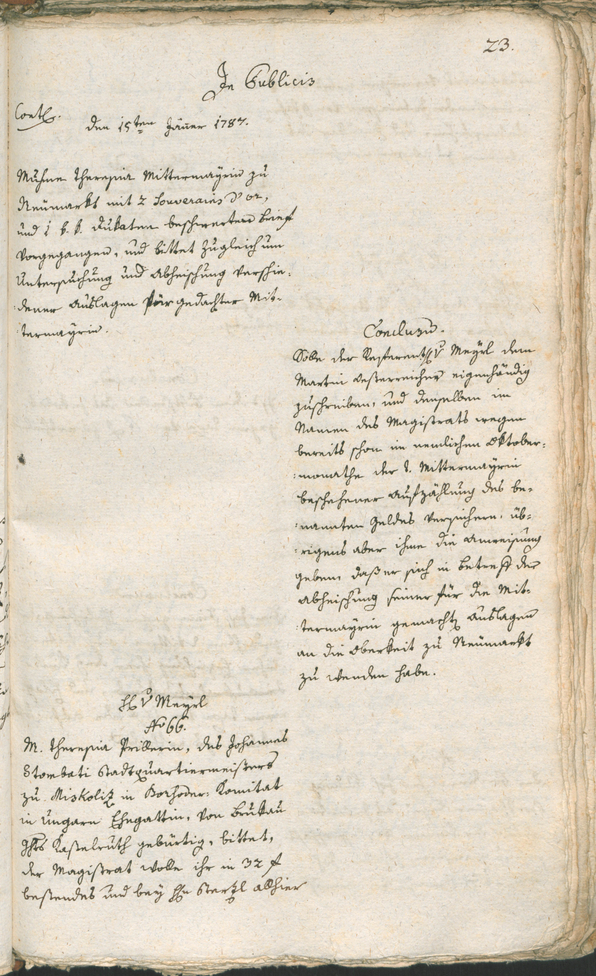 23.
In Publicis
Contl.
den 15ten Jäner 1787.
Muhme Theresia Mittermayrin zu
Neumarkt mit 2 Souverains d'or,
und 1 k. k. Dukaten beschwerten Brief
vorgegangen, und bittet zugleich um
Untersuchung und Abheischung verschie-
dener Auslagen für gedachte Mit-
termayrin.
Conclusum.
Solle der Referent H v Meyrl dem
Martin Oesterreicher eigenhändig
zuschreiben, und denselben im
Namen des Magistrats wegen
bereits schon im nemlichen Oktober-
monathe der T. Mittermayrin
beschehener Aufzählung des be-
nannten Geldes versichern, üb-
rigens aber ihme die Anweisung
geben, daß er sich in betreff der
Abheischung seiner für die Mit-
termayrin gemacht Auslagen
an die Oberkeit zu Neumarkt
zu wenden habe.
H v Meyrl
No 66.
M. Theresia Prillerin, des Johannes
Stombati Stadtquartiermeisters
zu Miskolz in Borschoder Komitat
in Ungarn Ehegattin, von
Kastelruth gebürtig, bittet,
der Magistrat wolle ihr in 32 f
bestendes und bey H Sterzl allhier